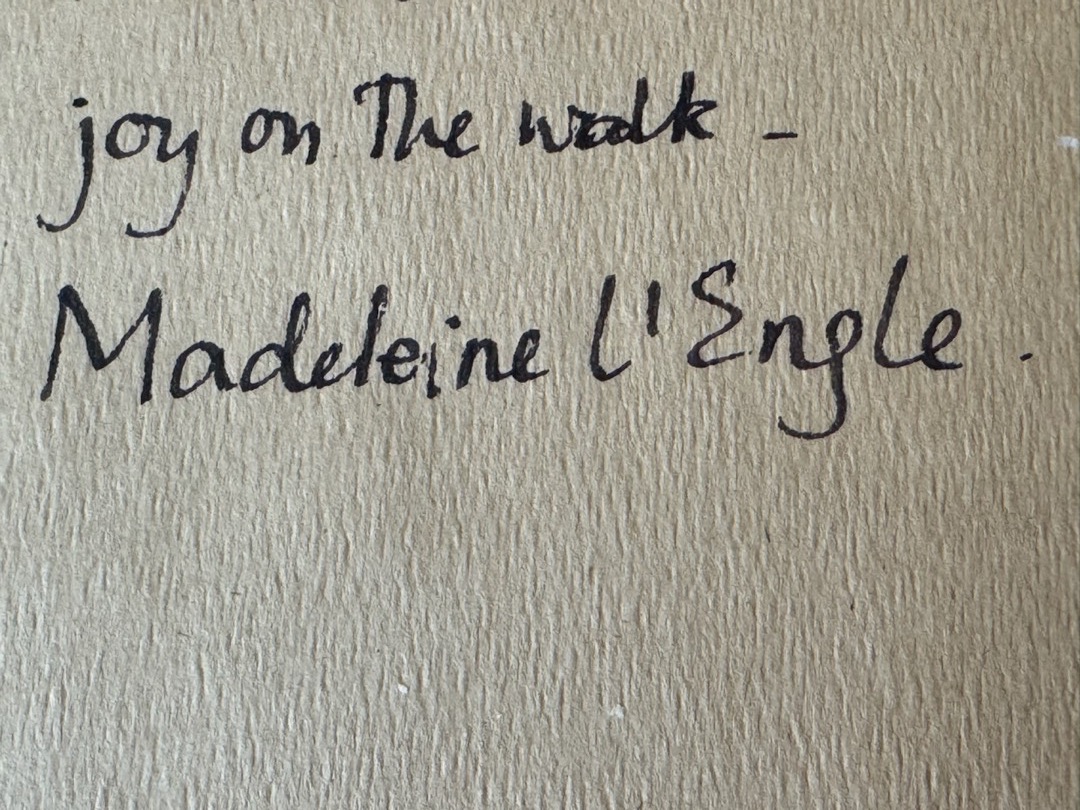 joy on The walk -
Madeleine l'Engle.